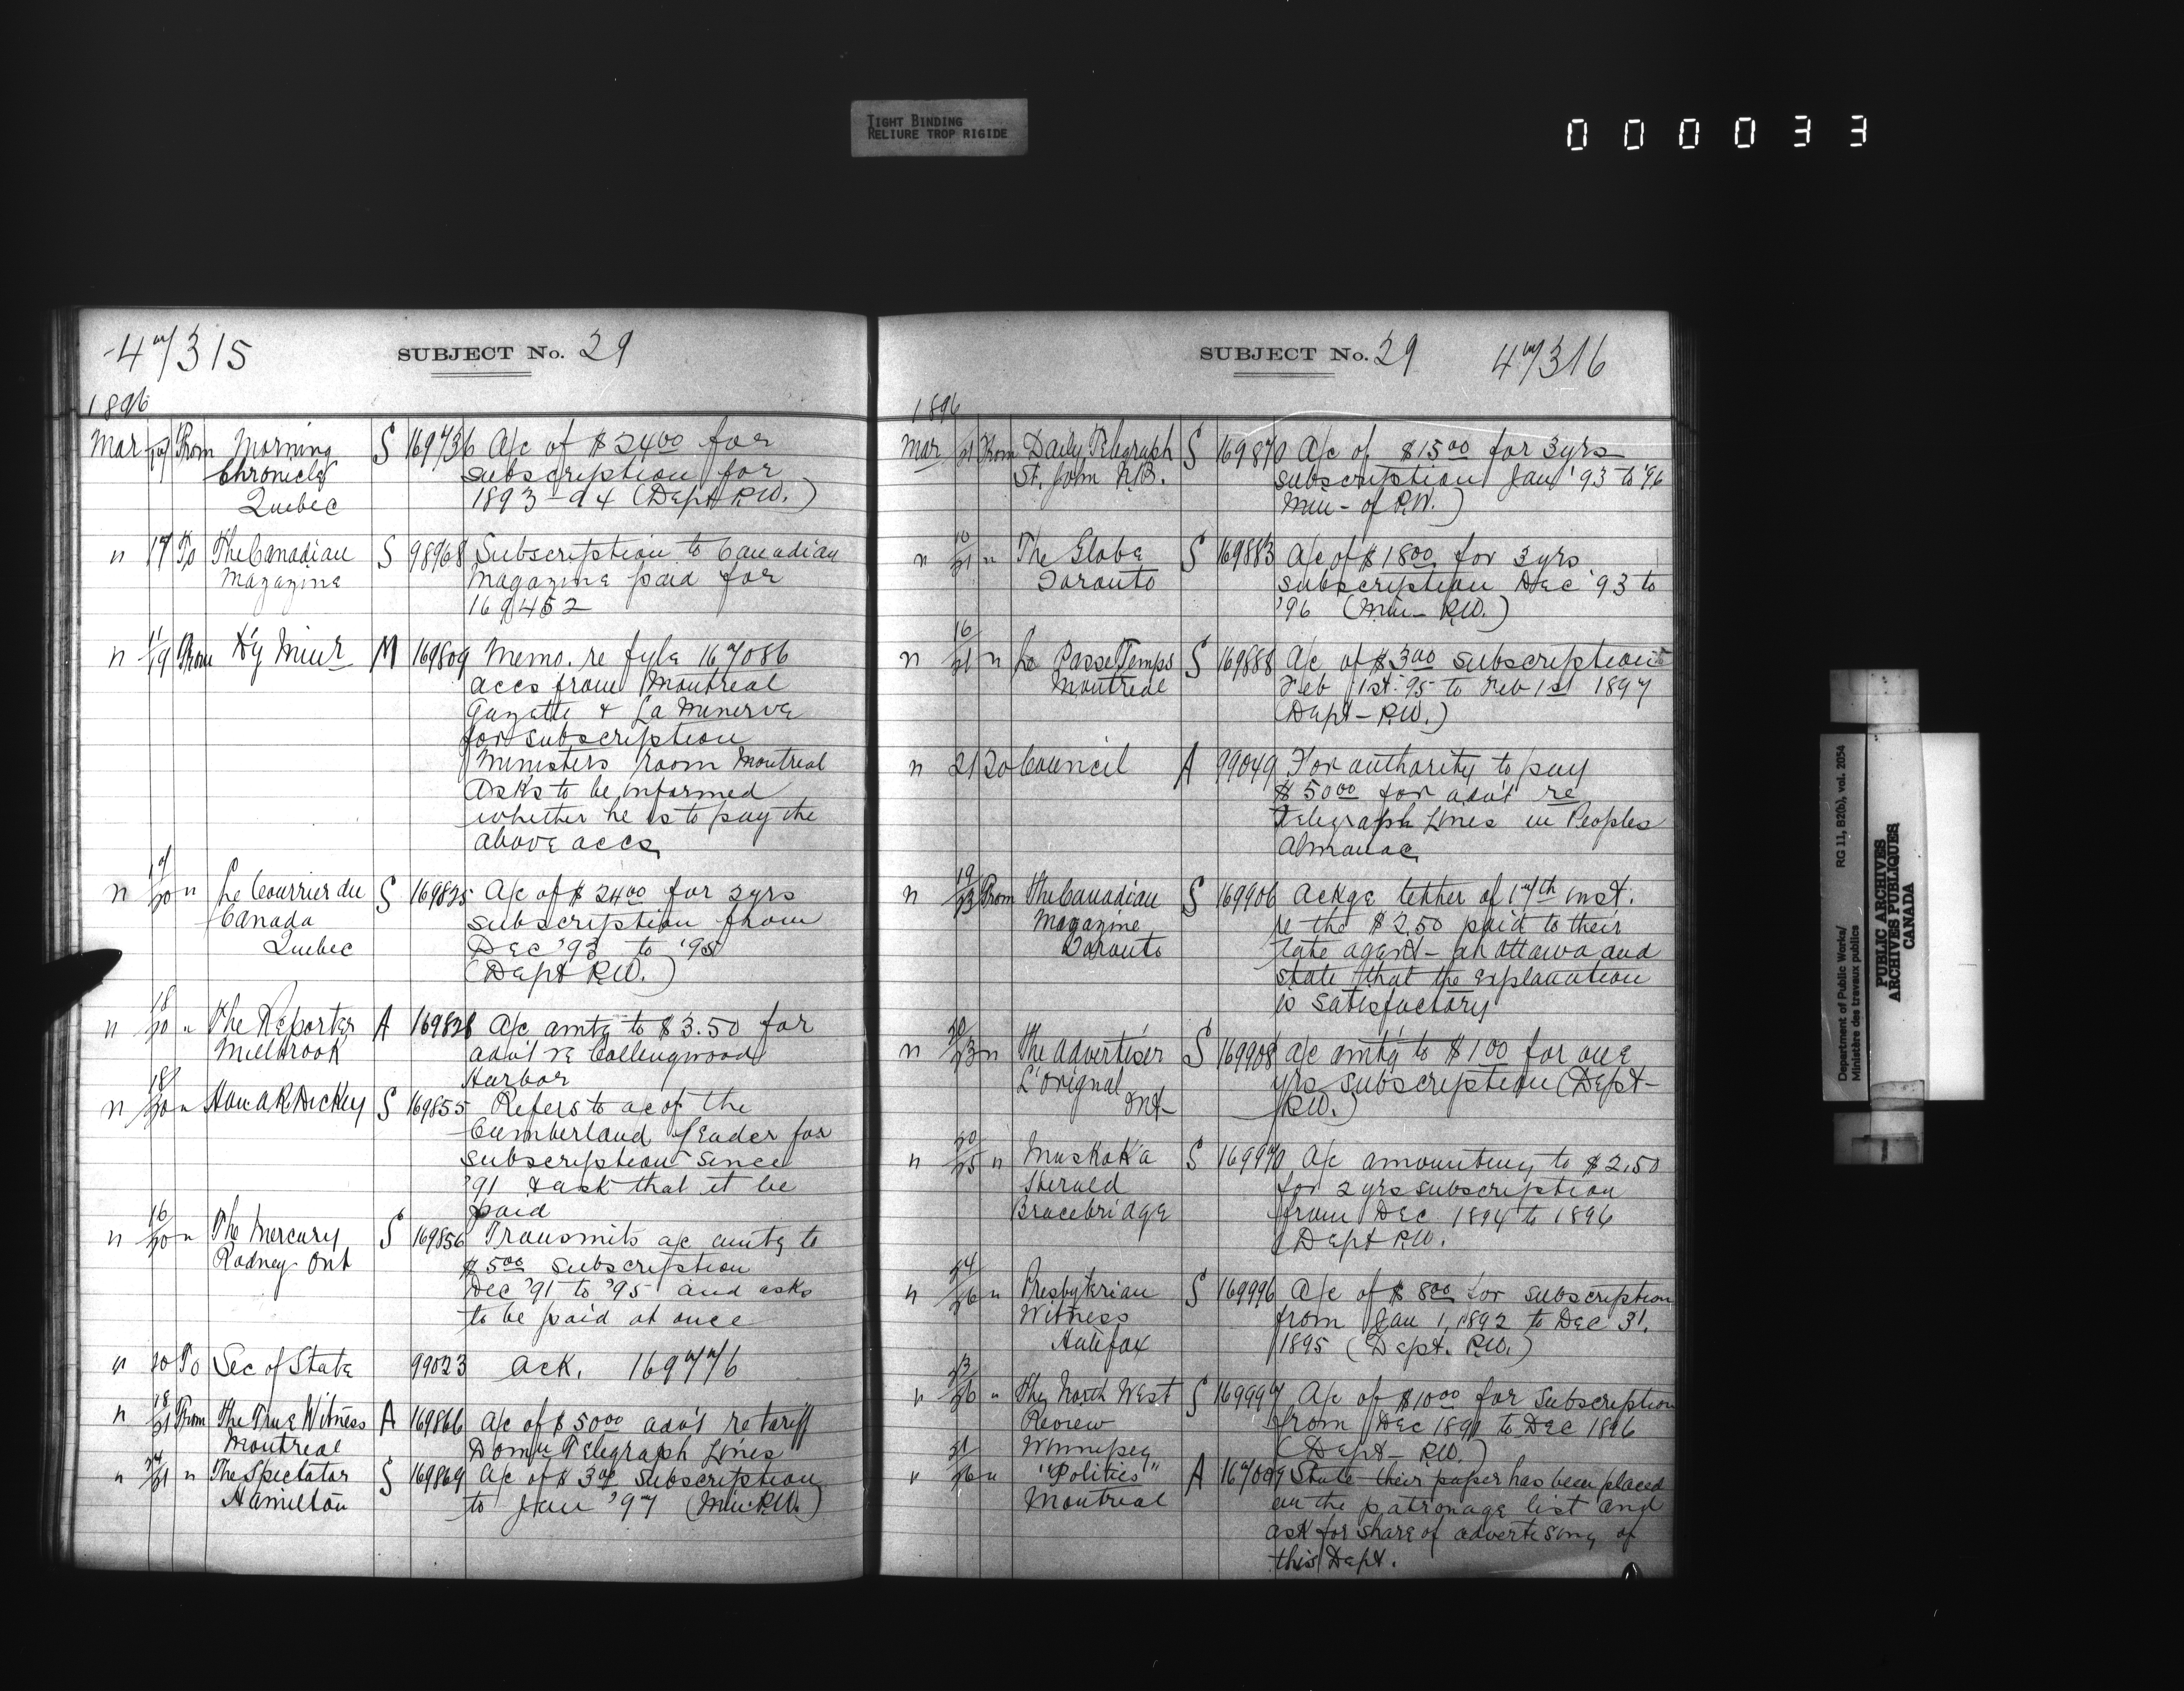 TIGHT BINDING
RELIURE TROP RIGIDE
000033
SUBJECT No. 29
1896
Mar 17 From Morning S 169736 A/c of $2400 for
Chronicle subscription for
Quebec 1893-94 (Dept P.W.)
" 17 To The Canadian S 98968 Subscription to Canadian
Magazine Magazine paid for
169452
" 19 From Hy Muir M 169809 Memo. re fyle 167086
accs from Montreal
Gazette & La Minerve
for subscription
Ministers room Montreal
Asks to be informed
whether he is to pay the
above accs
" 17/20 " Le Courrier du S 169825 A/c of $2400 for 2yrs
Canada subscription from
Quebec Dec '93 to '95
(Dept P.W.)
" 18/20 " The Reporter A 169828 A/c amtg to $3.50 for
Millbrook adv't re Collingwood
Harbor
" 18/20 " Hon A R Dickey S 169855 Refers to a/c of the
Cumberland Leader for
subscription since
'91 & ask that it be
paid
" 16/20 " The Mercury S 169856 Transmits a/c amtg to
Rodney Ont $500 subscription
Dec '91 to '95 and asks
to be paid at once
" 20 To Sec of State 99023 Ack. 169776
" 18/21 From The True Witness A 169866 A/c of $5000 adv't re tariff
Montreal Domn Telegraph Lines
" /21 " The Spectator S 169869 A/c of $300 subscription
Hamilton to Jan '97 (Min P.W.)
SUBJECT No. 29 4m/316
1896
Mar 21 From Daily Telegraph S 169870 A/c of $1500 for 3yrs
St. John N.B. subscription Jan '93 to '96
Min- of P.W.)
" 10/21 " The Globe S 169883 A/c of $1800 for 3yrs
Toronto subscription Dec '93 to
'96 (Min- P.W.)
" 16/21 " Le Passe Temps S 169888 A/c of $300 subscription
Montreal Feb 1st '95 to Feb 1st 1897
(Dept- P.W.)
" 21 To Council A 99049 For authority to pay
$5000 for adv't re
Telegraph Lines in Peoples
Almanac
" 19/23 From The Canadian S 169906 Ackge letter of 17th inst.
Magazine re the $2.50 paid to their
Toronto late agent- at Ottawa and
state that the explanation
is satisfactory
" 20/23 " The Advertiser S 169908 A/c amtg to $100 for one
L'Orignal yrs subscription (Dept-
Ont- P.W.)
" 20/25 " Muskoka S 169970 A/c amounting to $2.50
Herald for 2yrs subscription
Bracebridge from Dec 1894 to 1896
(Dept P.W.
" 24/26 " Presbyterian S 169996 A/c of $800 for subscription
Witness from Jan 1, 1892 to Dec 31,
Halifax 1895 (Dept. P.W.)
" 23/26 " The North West S 169997 A/c of $1000 for subscription
Review from Dec 1891 to Dec 1896
Winnipeg (Dept- P.W.)
" 21/26 " "Politics" A State their paper has been placed
Montreal on the patronage list and
ask for share of advertising of
this Dept.
Department of Public Works/
Ministère des travaux publics
RG 11, B2(b), vol. 2054
PUBLIC ARCHIVES
ARCHIVES PUBLIQUES
CANADA